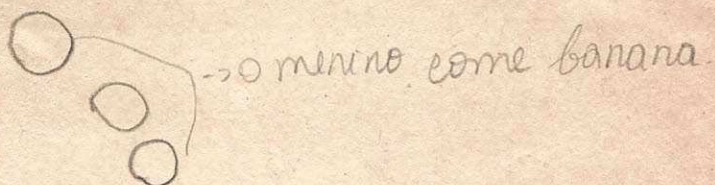 ->o menino come banana.